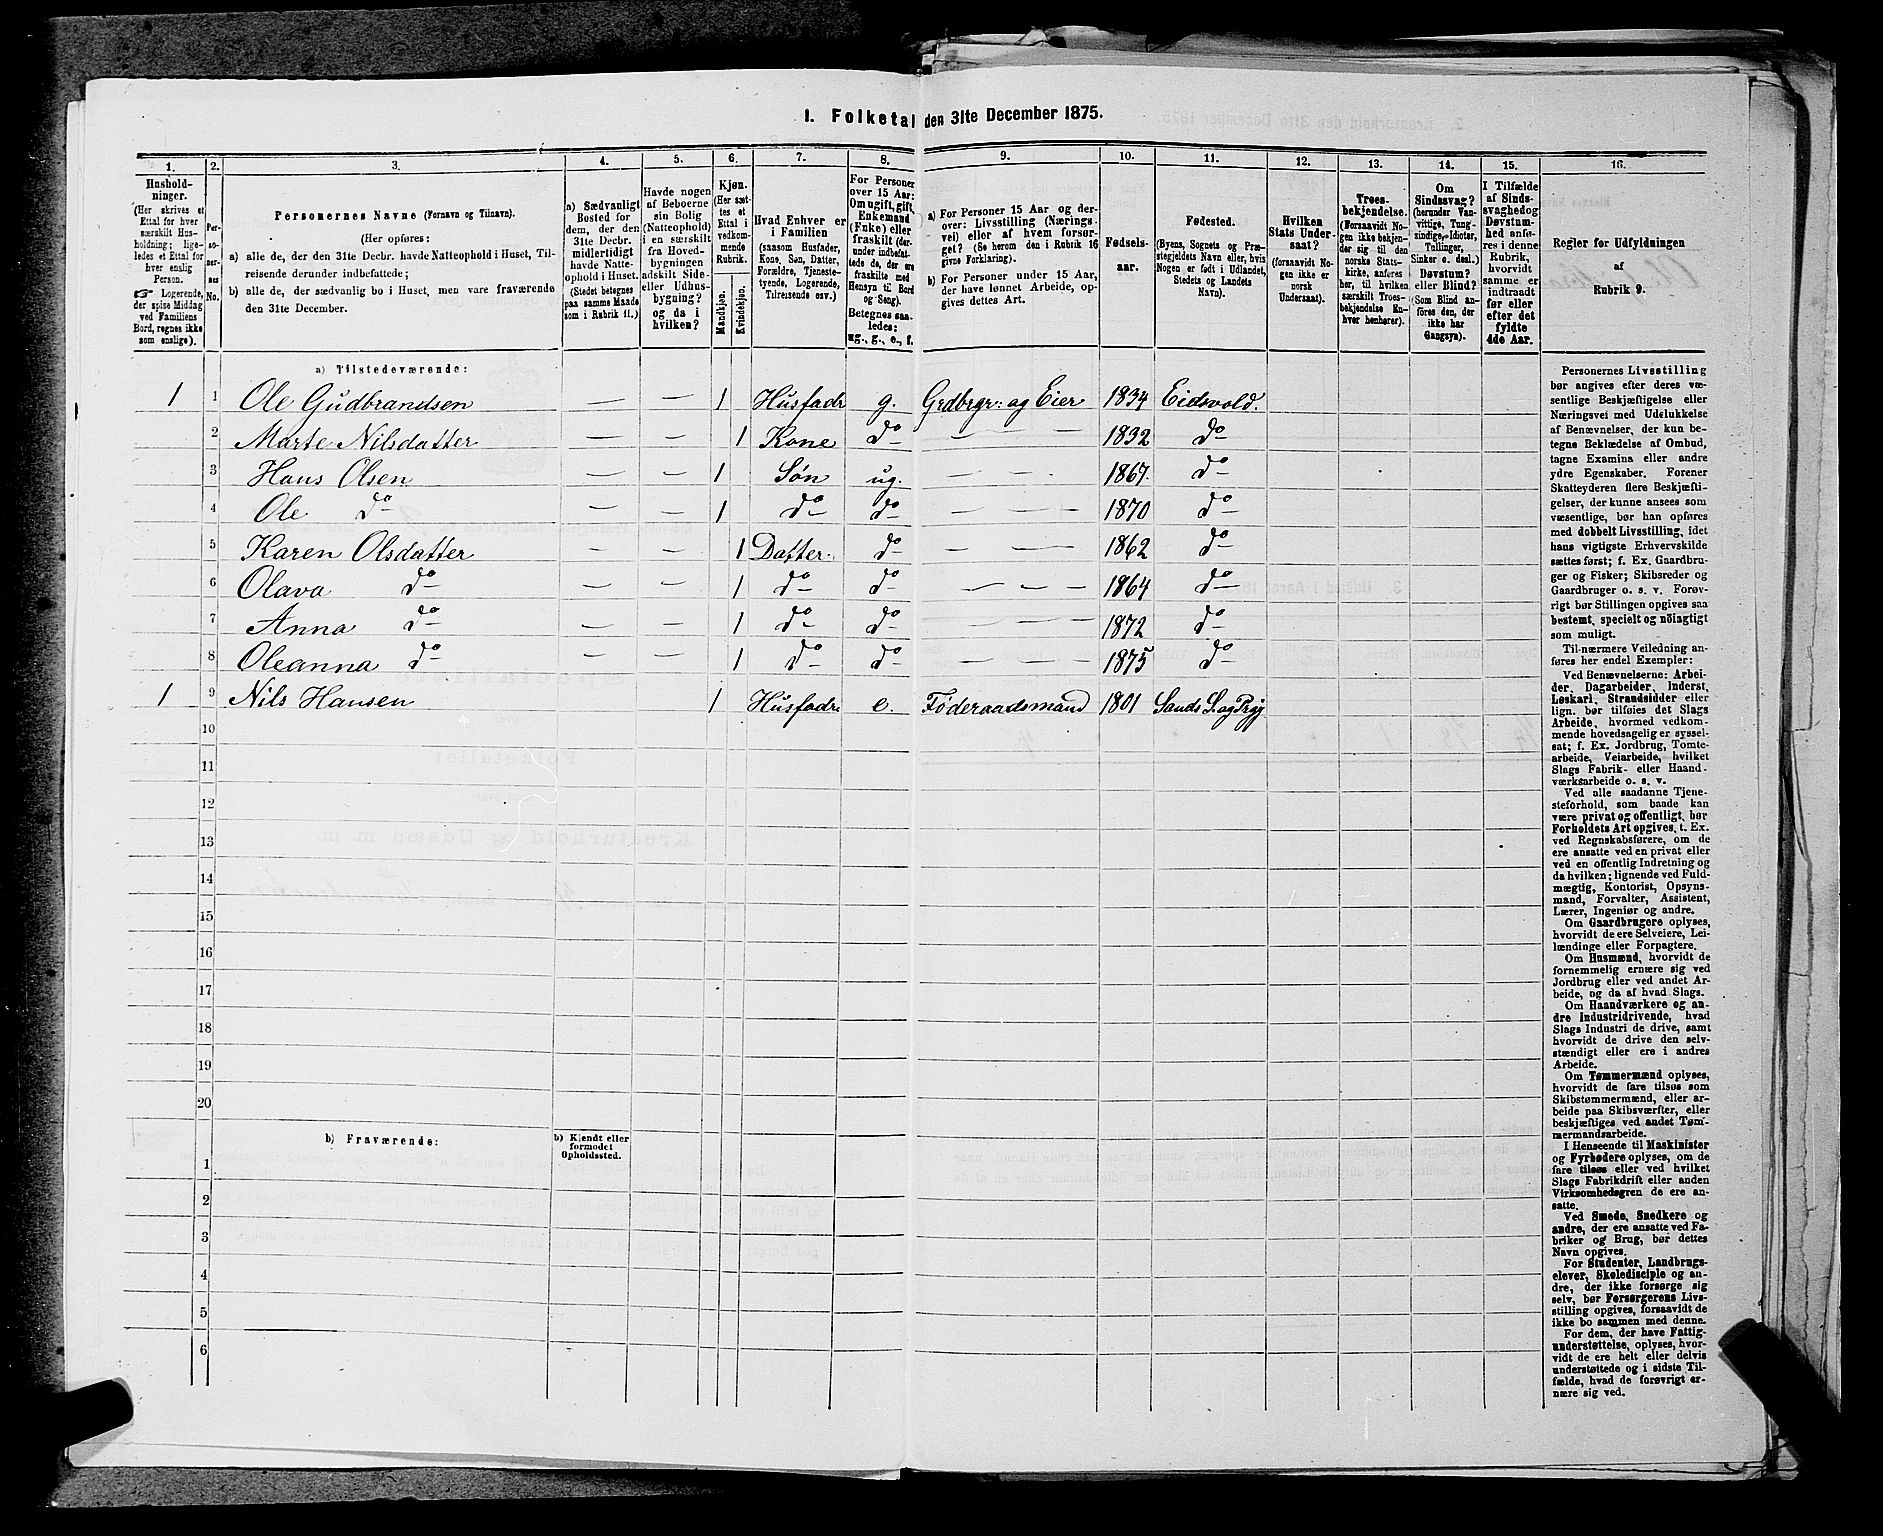 1. Folketal den 31te December 1875.
1. 2. 3. 4. 5. 6. 7. 8. 9. 10. 11. 12. 13. 14. 15. 16.
Hushold-
ninger.
(Her skrives et
Ettal for hver
særskilt Hus-
holdning; lige-
ledes et Ettal for
hver enslig
Person.
☞ Logerende,
der spise Middag
ved Familiens
Bord, regnes ikke
som enslige).
Per-
so-
ner-
nes
No.
Personernes Navne (Fornavn og Tilnavn).
(Her opføres:
a) alle de, der den 31te Decbr. havde Natteophold i Huset, Til-
reisende derunder indbefattede;
b) alle de, der sædvanlig bo i Huset, men vare fraværende
den 31te December.
a) Sædvanligt
Bosted for
dem, der den
31te Decbr.
midlertidigt
havde Natte-
ophold i Huset.
(Stedet betegnes
paa samme Maade
som i Rubrik 11.)
Havde nogen
af Beboerne
sin Bolig
(Natteophold)
i en særskilt
fra Hoved-
bygningen
adskilt Side-
eller Udhus-
bygning?
og da i
hvilken?
Kjøn.
(Her sæt-
tes et
Ettal i
vedkom-
mende
Rubrik.
Mandkjøn.
Kvindekjøn.
Hvad Enhver er
i Familien
(saasom Husfader,
Kone, Søn, Datter,
Forældre, Tjeneste-
tyende, Logerende,
Tilreisende osv.)
For Personer
over 15 Aar:
Om ugift, gift,
Enkemand
(Enke) eller
fraskilt (der-
under indbefat-
tede de, der ere
fraskilte med
Hensyn til Bord
og Seng).
Betegnes saa-
ledes:
ug., g., e., f.
a) For Personer 15 Aar og der-
over: Livsstilling (Nærings-
vei) eller af hvem forsør-
get? (Se herom den i Rubrik 16
givne Forklaring).
b) For Personer under 15 Aar,
der have lønnet Arbeide, op-
gives dettes Art.
Fødsels-
aar.
Fødested.
(Byens, Sognets og Præ-
stegjeldets Navn eller, hvis
Nogen er født i Udlandet,
Stedets og Landets
Navn).
Hvilken
Stats Under-
saat?
(forsaavidt No-
gen ikke er
norsk
Undersaat).
Troes-
bekjendelse.
(Forsaavidt No-
gen ikke bekjen-
der sig til den
norske Stats-
kirke, anføres
her, til hvilken
særskilt Troes-
bekjendelse En-
hver henhører).
Om
Sindssvag?
(herunder Van-
vittige, Tung-
sindige, Idioter,
Tullinger,
Sinker o. desl.)
Døvstum?
eller Blind?
(Som Blind an-
føres den, der
ikke har
Gangsyn).
I Tilfælde
af Sinds-
svaghed og
Døvstum-
hed anfø-
res i denne
Rubrik,
hvorvidt
samme er
indtraadt
før eller
efter det
fyldte
4de Aar.
Regler for Udfyldningen
af
Rubrik 9.
a) Tilstedeværende:
1 1 Ole Gudbrandsen — — 1 Husfadr g. Grdbrgr: og Eier 1834 Eidsvold.
2 Marte Nilsdatter — — 1 Kone do — — — 1832 do
3 Hans Olsen — — 1 Søn ug. — — — 1867. do
4 Ole do — — 1 do do — — — 1870 do
5 Karen Olsdatter — — 1 Datter. do — — — 1862 do
6 Olava do — — 1 do do — — — 1864 do
7 Anna do — — 1 do do — — — 1872 do
8 Oleanna do — — 1 do do — — — 1875 do
1 9 Nils Hansen 1 Husfadr e. Föderaadsmand 1801 Sands S. og Prgj
10
11
12
13
14
15
16
17
18
19
20
b) Fraværende:
b) Kjendt eller
formodet
Opholdssted.
1
2
3
4
5
6
Personernes Livsstilling
bør angives efter deres væ-
sentlige Beskjæftigelse eller
Næringsvei med Udelukkelse
af Benævnelser, der kun be-
tegne Beklædelse af Ombud,
tagne Examina eller andre
ydre Egenskaber. Forener
Skatteyderen flere Beskjæfti-
gelser, der kunne ansees som
væsentlige, bør han opføres
med dobbelt Livsstilling, idet
hans vigtigste Erhvervskilde
sættes først; f. Ex. Gaardbru-
ger og Fisker; Skibsreder og
Gaardbruger o. s. v. Forøv-
rigt bør Stillingen opgives saa
bestemt, specielt og nöiagtigt
som muligt.
Til nærmere Veiledning an-
føres her endel Exempler:
Ved Benævnelserne: Arbei-
der, Dagarbeider, Inderst,
Løskarl, Strandsidder eller
lign. bør tilføies det Slags
Arbeide, hvormed vedkom-
mende hovedsagelig er syssel-
sat; f. Ex. Jordbrug, Tomte-
arbeide, Veiarbeide, hvilket
Slags Fabrik- eller Haand-
værksarbeide o. s. v.
Ved alle saadanne Tjene-
steforhold, som baade kan
være privat og offentligt, bør
Forholdets Art opgives, t. Ex.
ved Regnskabsførere, om de
ere ansatte ved en privat eller
ved en offentlig Indretning og
da hvilken; lignende ved Fuld-
mægtig, Kontorist, Opsyns-
mand, Forvalter, Assistent,
Lærer, Ingeniør og andre.
Om Gaardbrugere oplyses,
hvorvidt de ere Selveiere, Lei-
lændinge eller Forpagtere.
Om Husmænd, hvorvidt de
fornemmelig ernære sig ved
Jordbrug eller ved andet Ar-
beide, og da af hvad Slags.
Om Haandværkere og an-
dre Industridrivende, hvad
Slags Industri de drive, samt
hvorvidt de drive den selv-
stændigt eller ere i andres
Arbeide.
Om Tømmermænd oplyses,
hvorvidt de fare tilsøs som
Skibstømmermænd, eller ar-
beide paa Skibsværfter, eller
beskjæftiges ved andet Tøm-
mermandsarbeide.
I Henseende til Maskinister
og Fyrbødere oplyses, om de
fare tilsøs eller ved hvilket
Slags Fabrikdrift eller anden
Virksomhedsgren de ere an-
satte.
Ved Smede, Snedkere og
andre, der ere ansatte ved Fa-
briker og Brug, bør dettes
Navn opgives.
For Studenter, Landbrugs-
elever, Skoledisciple og an-
dre, der ikke forsørge sig
selv, bør Forsørgerens Livs-
stilling opgives, forsaavidt de
ikke bo sammen med denne.
For dem, der have Fattig-
understøttelse, oplyses, hvor-
vidt de ere helt eller delvis
understøttede og i sidste Til-
fælde, hvad de forøvrigt er-
nære sig ved.